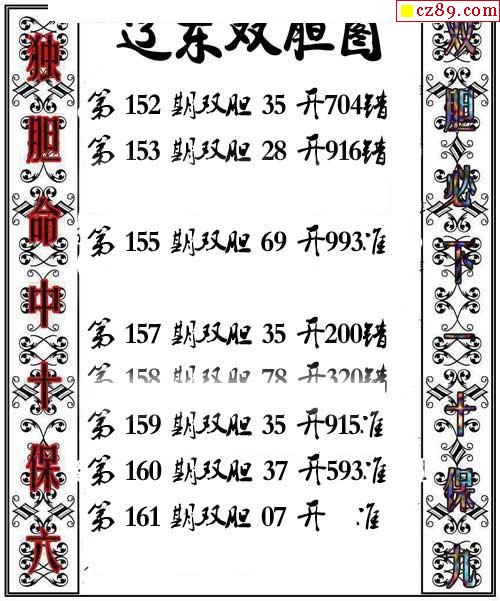 cz89.com
辽东双胆图
独胆命中十保六
第 152 期双胆 35 开704错
第 153 期双胆 28 开916错
第 155 期双胆 69 开993准
第 157 期双胆 35 开200错
第 158 期双胆 78 开320错
第 159 期双胆 35 开915准
第 160 期双胆 37 开593准
第 161 期双胆 07 开 准
双胆必下一十保九